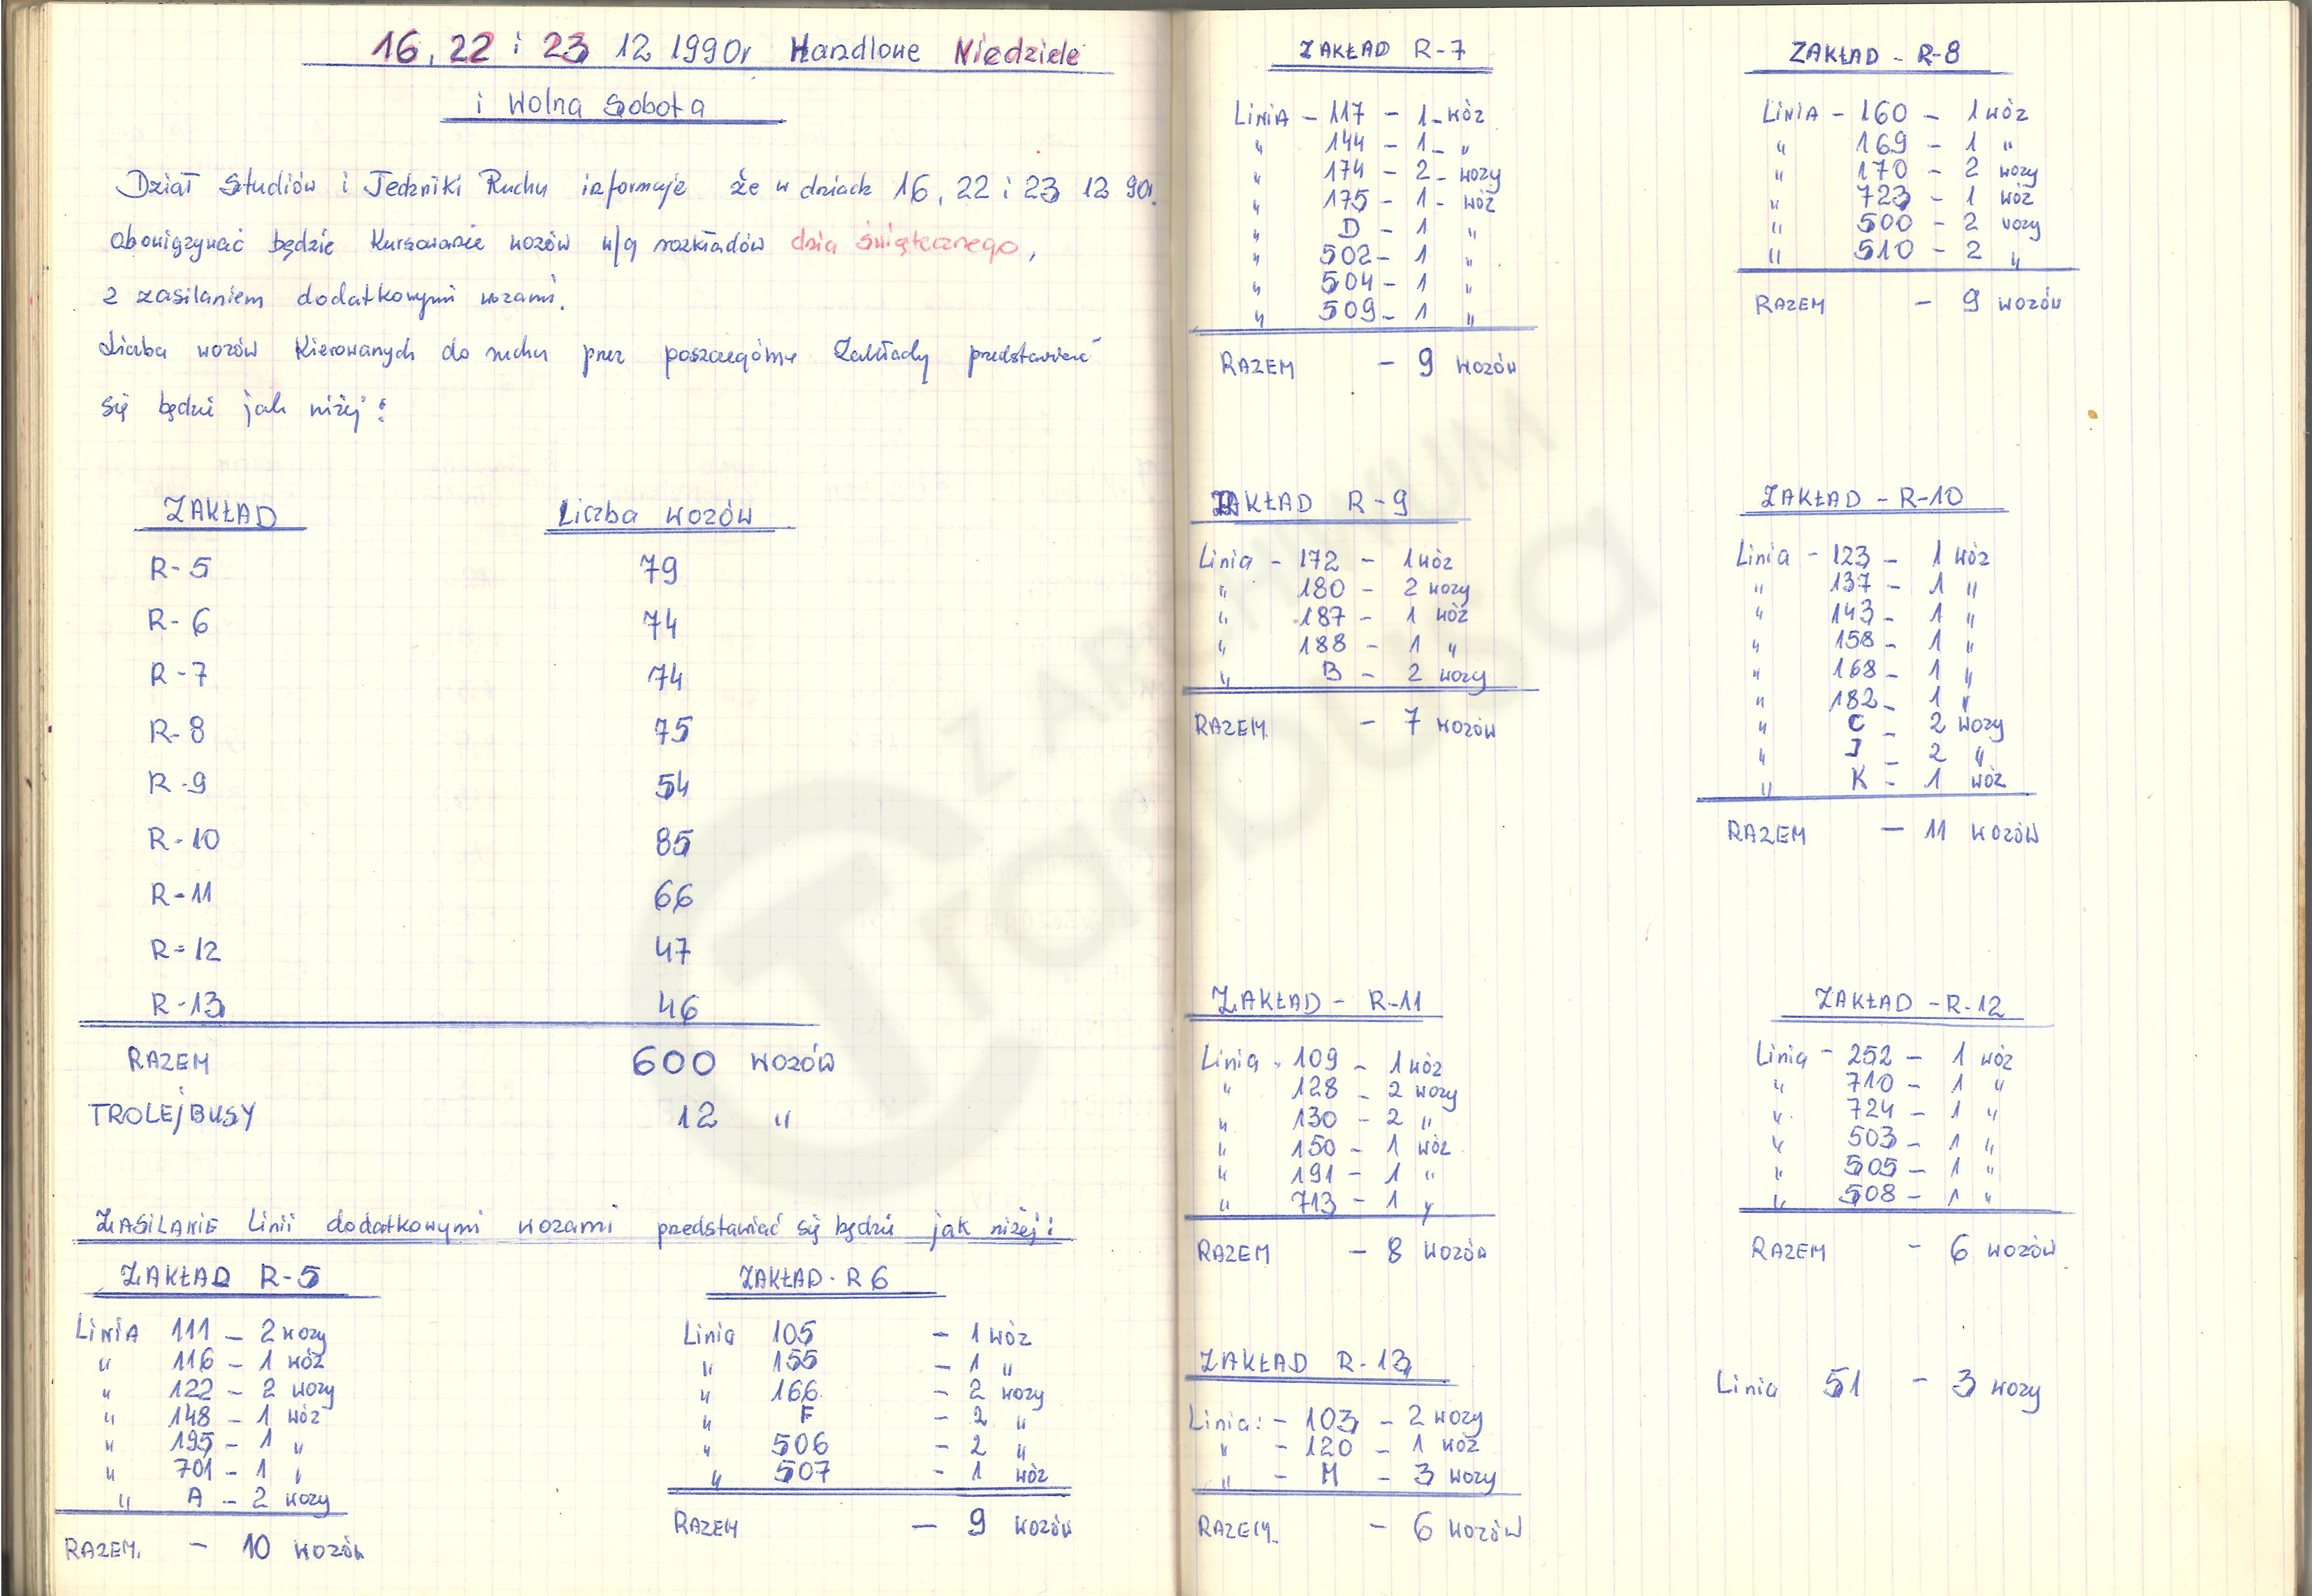 16, 22 i 23 12 1990r Handlowe Niedziele
i Wolna Sobota
Dział Studiów i Techniki Ruchu informuje że w dniach 16, 22 i 23 12 90r.
obowiązywać będzie kursowanie wozów w/g rozkładów dnia świątecznego,
z zasilaniem dodatkowymi wozami.
Liczba wozów kierowanych do ruchu przez poszczególne Zakłady przedstawiać
się będzie jak niżej:
ZAKŁAD Liczba wozów
R-5 79
R-6 74
R-7 74
R-8 75
R-9 54
R-10 85
R-11 66
R-12 47
R-13 46
RAZEM 600 wozów
TROLEJBUSY 12 "
ZASILANIE Linii dodatkowymi wozami przedstawiać się będzie jak niżej:
ZAKŁAD R-5
LINIA 111 - 2 wozy
" 116 - 1 wóz
" 122 - 2 wozy
" 148 - 1 wóz
" 195 - 1 "
" 701 - 1 "
" A - 2 wozy
RAZEM. - 10 wozów
ZAKŁAD - R 6
Linia 105 - 1 wóz
" 155 - 1 "
" 166 - 2 wozy
" F - 2 "
" 506 - 2 "
" 507 - 1 wóz
RAZEM - 9 wozów
ZAKŁAD R-7
LINIA - 117 - 1 - wóz
" 144 - 1 - "
" 174 - 2 - wozy
" 175 - 1 - wóz
" D - 1 "
" 502 - 1 "
" 504 - 1 "
" 509 - 1 "
RAZEM - 9 wozów
ZAKŁAD - R-8
LINIA - 160 - 1 wóz
" 169 - 1 "
" 170 - 2 wozy
" 723 - 1 wóz
" 500 - 2 wozy
" 510 - 2 "
RAZEM - 9 wozów
ZAKŁAD R-9
Linia - 172 - 1 wóz
" 180 - 2 wozy
" 187 - 1 wóz
" 188 - 1 "
" B - 2 wozy
RAZEM. - 7 wozów
ZAKŁAD - R-10
Linia - 123 - 1 wóz
" 137 - 1 "
" 143 - 1 "
" 158 - 1 "
" 168 - 1 "
" 182 - 1 "
" C - 2 wozy
" J - 2 "
" K - 1 wóz
RAZEM - 11 wozów
ZAKŁAD - R-11
Linia - 109 - 1 wóz
" 128 - 2 wozy
" 130 - 2 "
" 150 - 1 wóz
" 191 - 1 "
" 713 - 1 "
RAZEM - 8 wozów
ZAKŁAD - R-12
Linia - 252 - 1 wóz
" 710 - 1 "
" 724 - 1 "
" 503 - 1 "
" 505 - 1 "
" 508 - 1 "
RAZEM - 6 wozów
ZAKŁAD R-13
Linia: - 103 - 2 wozy
" - 120 - 1 wóz
" - M - 3 wozy
RAZEM. - 6 wozów
Linia 51 - 3 wozy
Z ARCHIWUM
Trasbusa